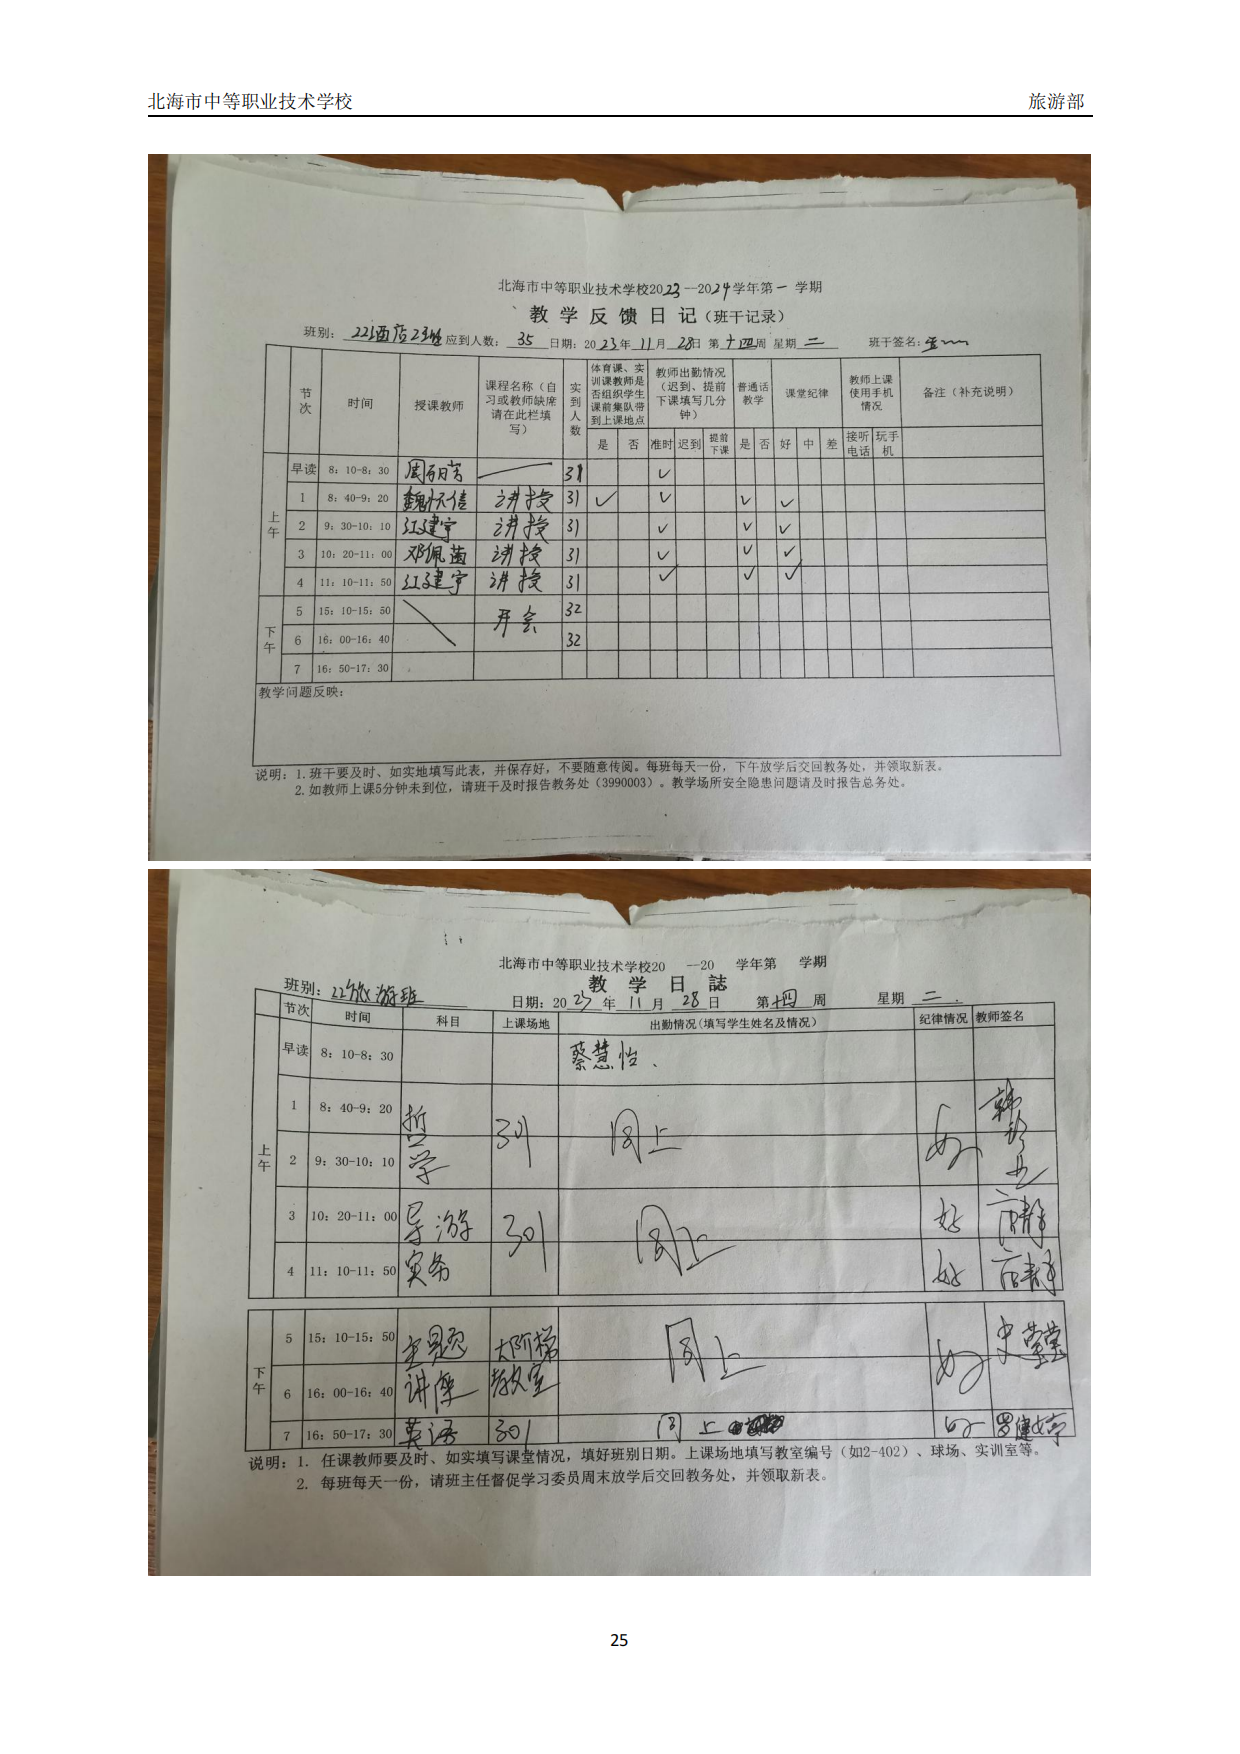 北海市中等职业技术学校 旅游部
北海市中等职业技术学校2023—2024学年第一学期
教学反馈日记(班干记录)
班别: 22级酒店2班 应到人数: 35 日期: 2023年11月28日 第十四周 星期二 班干签名:
节次 时间 授课教师 课程名称(自习或教师缺席请在此栏填写) 实到人数 体育课、实训课教师是否组织学生课前集队带到上课地点 教师出勤情况(迟到、提前下课填写几分钟) 普通话教学 课堂纪律 教师上课使用手机情况 备注(补充说明)
是 否 准时 迟到 提前下课 是 否 好 中 差 接听电话 玩手机
上午
早读 8:10-8:30 31 ✓
1 8:40-9:20 魏怀信 讲授 31 ✓ ✓ ✓ ✓
2 9:30-10:10 江建宇 讲授 31 ✓ ✓ ✓
3 10:20-11:00 邓佩茵 讲授 31 ✓ ✓ ✓
4 11:10-11:50 江建宇 讲授 31 ✓ ✓ ✓
下午
5 15:10-15:50 开会 32
6 16:00-16:40 32
7 16:50-17:30
教学问题反映:
说明:1.班干要及时、如实地填写此表,并保存好,不要随意传阅。每班每天一份,下午放学后交回教务处,并领取新表。
2.如教师上课5分钟未到位,请班干及时报告教务处(3990003)。教学场所安全隐患问题请及时报告总务处。
北海市中等职业技术学校20 —20 学年第 学期
教 学 日 誌
班别: 22旅游班 日期: 2023年11月28日 第十四周 星期二
节次 时间 科目 上课场地 出勤情况(填写学生姓名及情况) 纪律情况 教师签名
上午
早读 8:10-8:30 蔡慧怡、
1 8:40-9:20 哲学 301 同上 好
2 9:30-10:10
3 10:20-11:00 导游实务 301 同上 好
4 11:10-11:50 好
下午
5 15:10-15:50 主题讲座 大阶梯教室 同上 好 史莹莹
6 16:00-16:40
7 16:50-17:30 英语 301 同上 好 罗健婷
说明:1. 任课教师要及时、如实填写课堂情况,填好班别日期。上课场地填写教室编号(如2-402)、球场、实训室等。
2. 每班每天一份,请班主任督促学习委员周末放学后交回教务处,并领取新表。
25